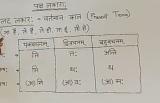 पञ्च लकाराः
लट् लकारः - वर्तमान काल (Present Tense)
(ता है, ते हैं, ती है, ता हूँ, ते हो)
एकवचनम् द्विवचनम् बहुवचनम्
ति तः अन्ति
सि थः थ
(आ) मि (आ) वः (आ) मः